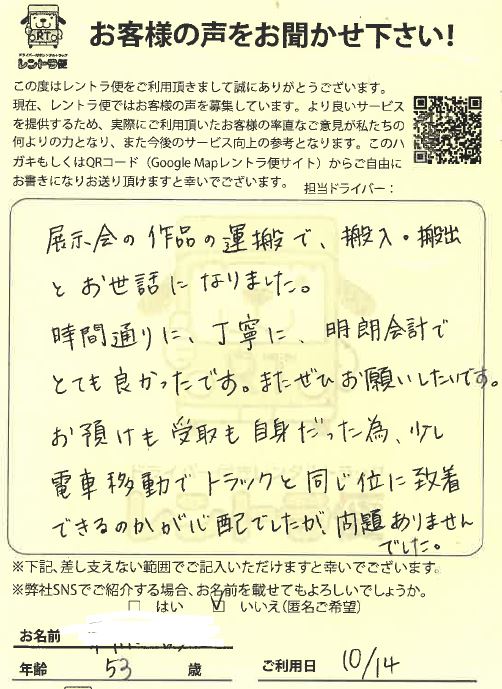 RT
ドライバー付きレンタルトラック
レントラ便
お客様の声をお聞かせ下さい!
この度はレントラ便をご利用頂きまして誠にありがとうございます。
現在、レントラ便ではお客様の声を募集しています。より良いサービス
を提供するため、実際にご利用頂いたお客様の率直なご意見が私たちの
何よりの力となり、また今後のサービス向上の参考となります。このハ
ガキもしくはQRコード（Google Mapレントラ便サイト）からご自由に
お書きになりお送り頂けますと幸いでございます。
担当ドライバー：
展示会の作品の運搬で、搬入・搬出
とお世話になりました。
時間通りに、丁寧に、明朗会計で
とても良かったです。またぜひお願いしたいです。
お預けも受取も自身だった為、少し
電車移動でトラックと同じ位に致着
できるのかが心配でしたが、問題ありません
でした。
※下記、差し支えない範囲でご記入いただけますと幸いでございます。
※弊社SNSでご紹介する場合、お名前を載せてもよろしいでしょうか。
□ はい ☑ いいえ（匿名ご希望）
お名前
年齢 53 歳 ご利用日 10/14